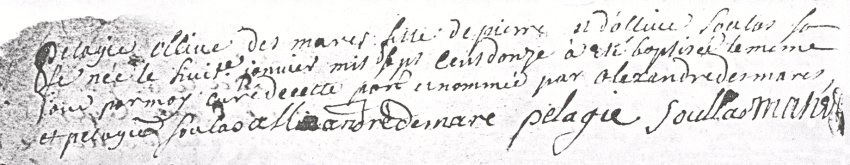 pelagie ollive des mares fille de pierre et d'ollive soulas sa
fe née le huit janvier mil sept cens donze à été baptisée le même
jour par moy curé de cette par et nommée par alexandre desmares
et pelagie soulas allixandre demare pelagie soullas